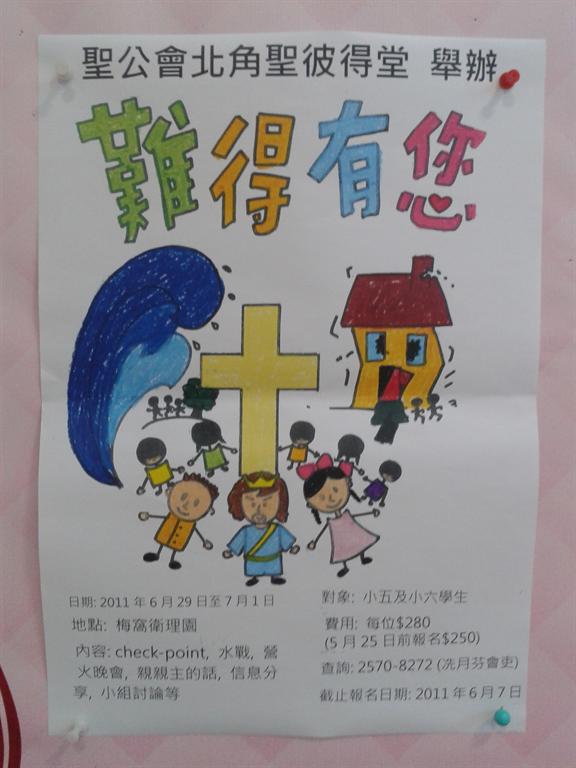 聖公會北角聖彼得堂 舉辦
難得有您
日期: 2011 年 6 月 29 日至 7 月 1 日
地點: 梅窩衛理園
內容: check-point, 水戰, 營
火晚會, 親親主的話, 信息分
享, 小組討論等
對象: 小五及小六學生
費用: 每位$280
(5 月 25 日前報名$250)
查詢: 2570-8272 (冼月芬會吏)
截止報名日期: 2011 年 6 月 7 日